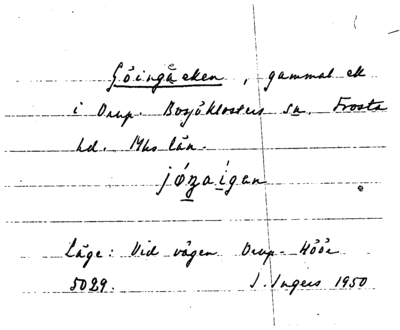 Göingaeken, gammal ek
i Orup. Bosjöklosters sn. Frosta
hd. Mhs län.
jöŋaigan
Läge: Vid vägen Orup-Höör
5029. I. Ingers 1950